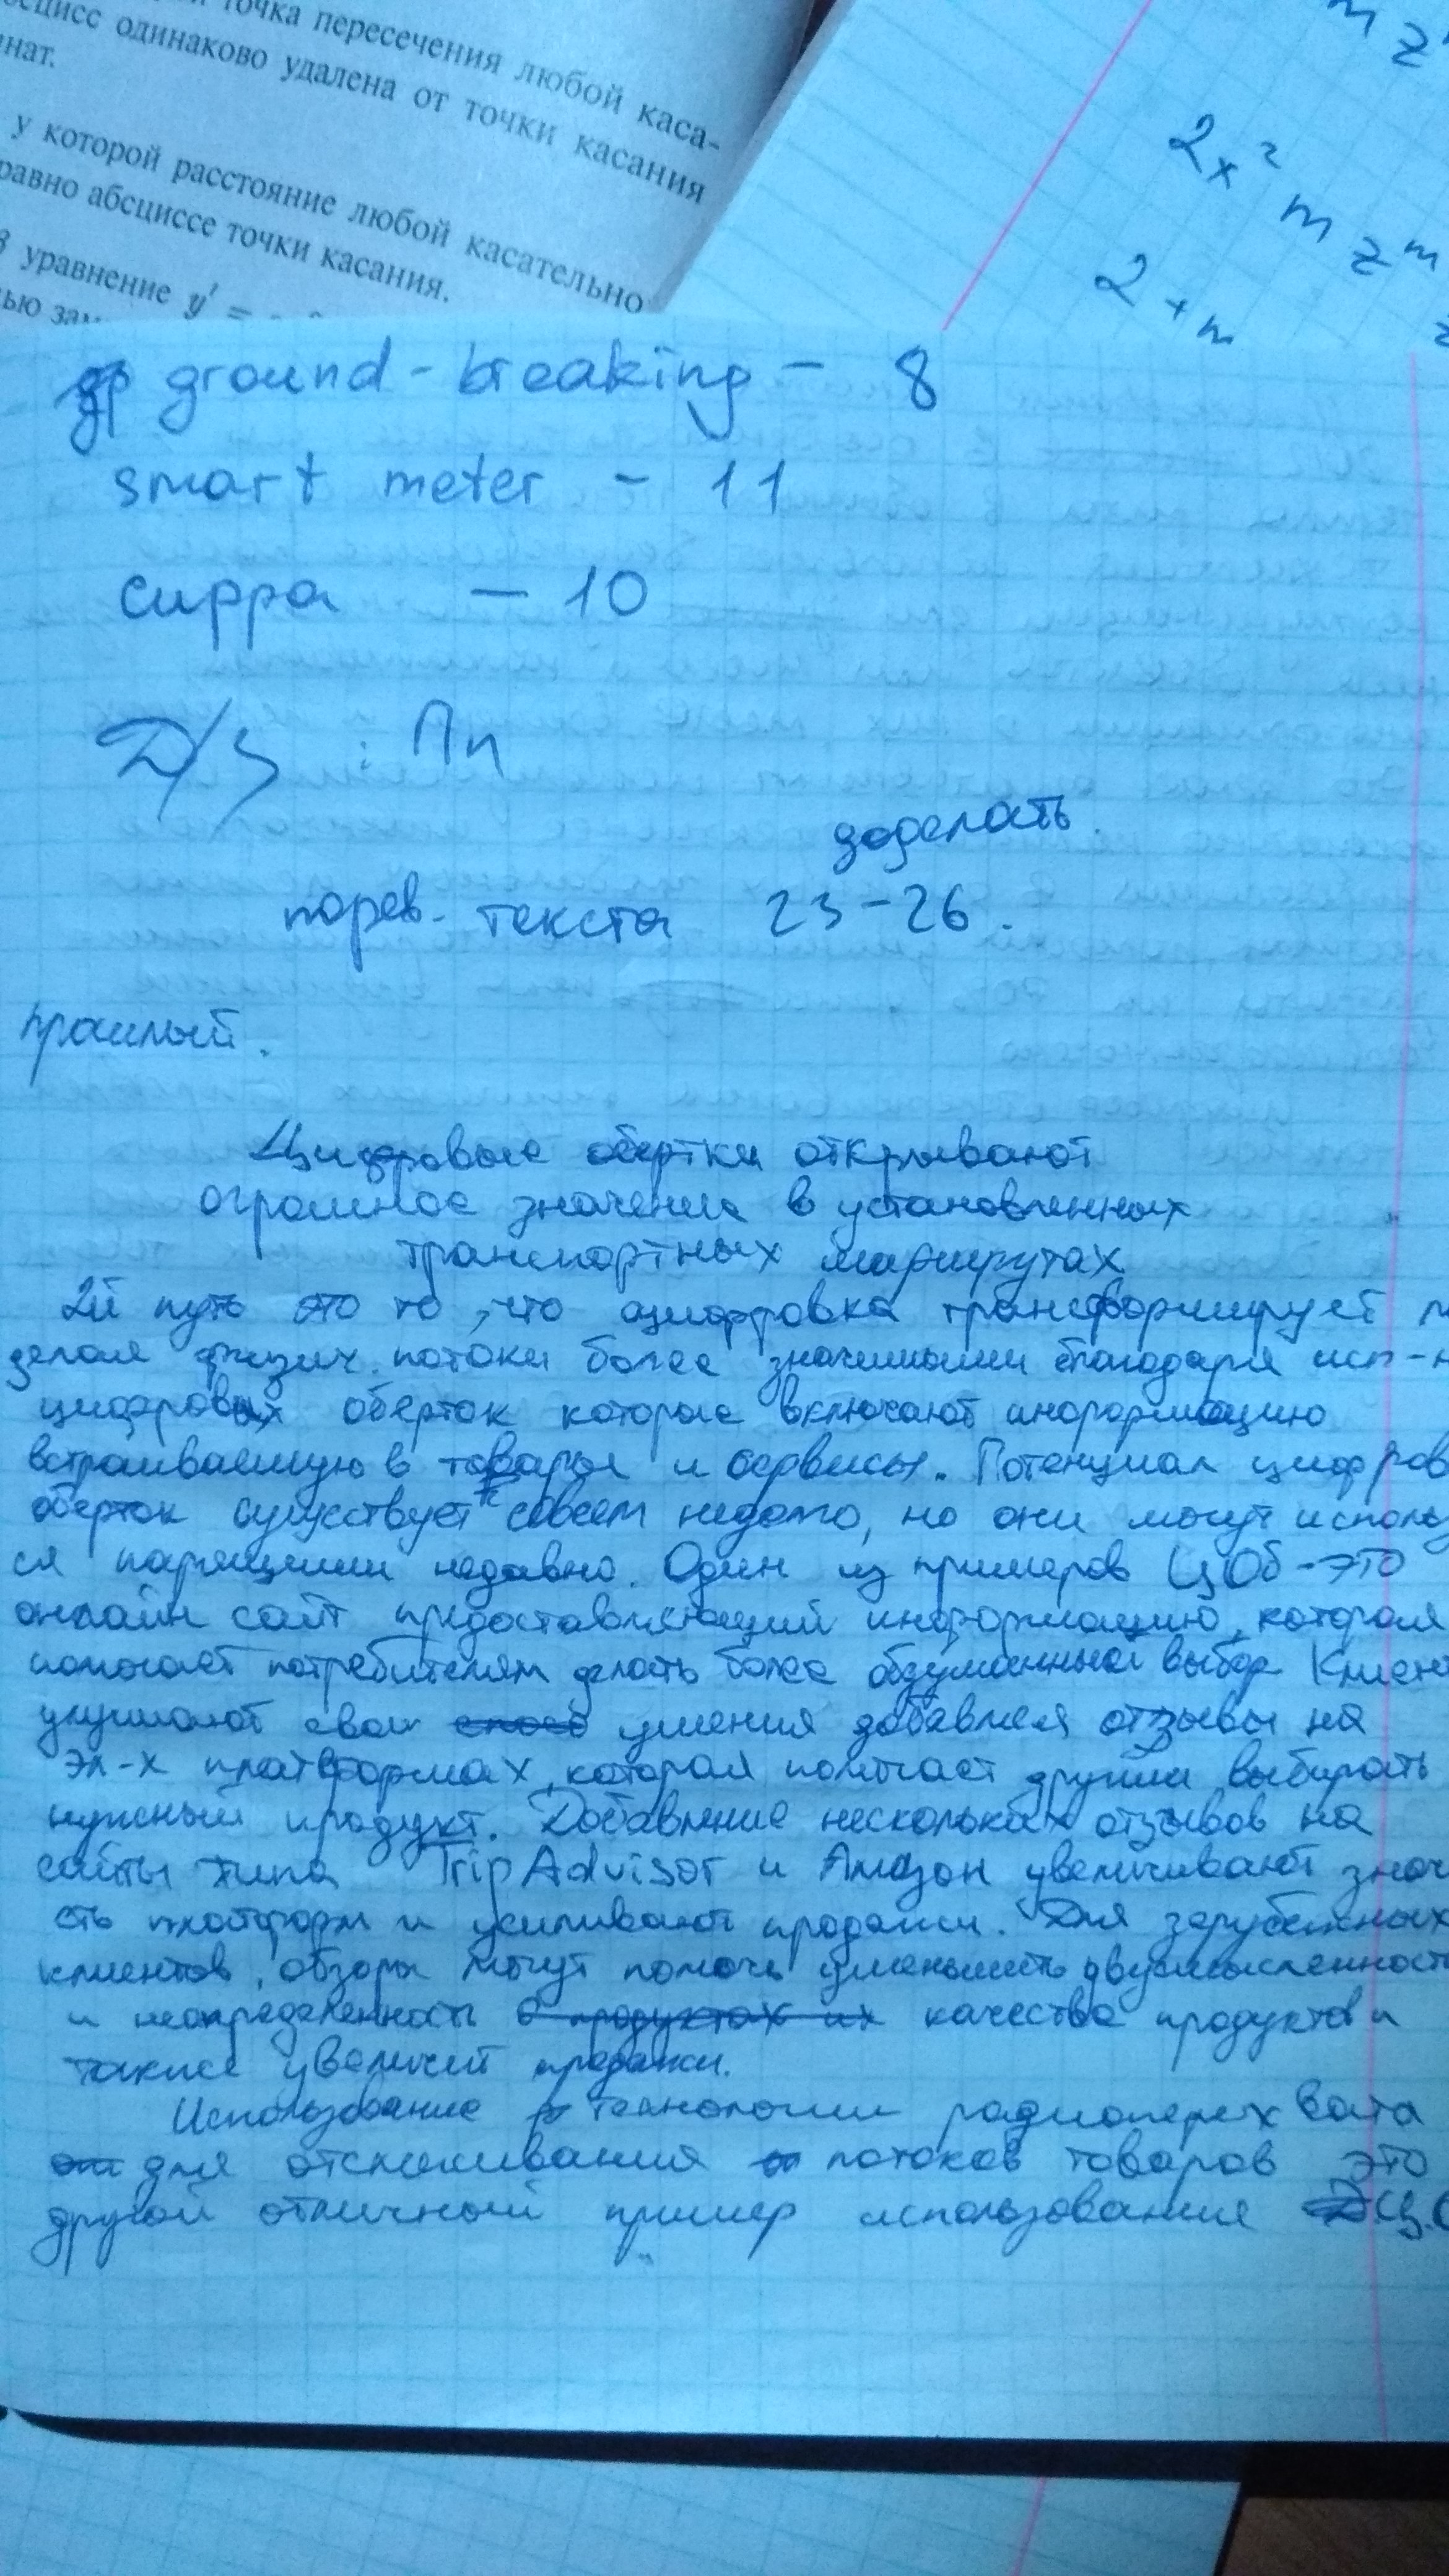 точка пересечения любой каса-
сцисс одинаково удалена от точки касания
нат.
у которой расстояние любой касательно
равно абсциссе точки касания.
уравнение y' =
2x² m z^m
2 + m
ground-breaking - 8
smart meter - 11
сирра - 10
Д/З : Пп
доделать.
перев. текста 23-26.
прошлый.
Цифровые обертки открывают
огромное значение в установленных
транспортных маршрутах
2й путь это то, что оцифровка трансформирует
делая физич. потоки более значимыми благодаря исп-
цифровых оберток которые включают информацию
встраиваемую в товары и сервисы. Потенциал цифров
оберток существует совсем недолго, но они могут исполь
ся недавно. Один из примеров ЦОб-это
онлайн сайт предоставляющий информацию, которая
помогает потребителям делать более обдуманный выбор Клиен
улучшают свои умения добавляя отзывы на
эл-х платформах, которая помогает другим выбирать
нужный продукт. Добавление нескольких отзывов на
сайты типа TripAdvisor и Амазон увеличивают знач
сть платформ и усиливают продажи. Для зарубежных
клиентов, обзоры могут помочь уменьшить двусмысленность
и неопределенность качества продуктов и
также увеличит продажи.
Использование технологии радиоперехвата
для отслеживания потоков товаров это
другой отличный пример использования